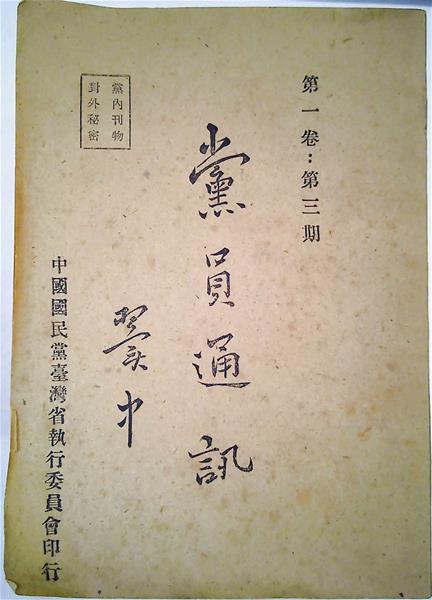 第一卷：第三期
黨員通訊
翼中
黨內刊物
對外秘密
中國國民黨臺灣省執行委員會印行